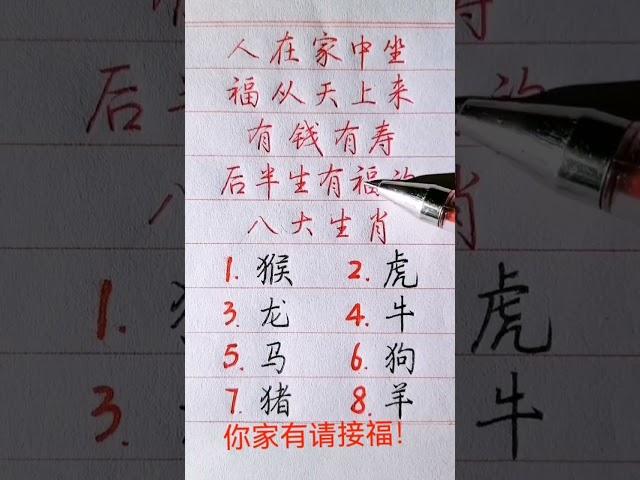 人在家中坐
福从天上来
有钱有寿
后半生有福的
八大生肖
1. 猴 2. 虎
3. 龙 4. 牛
5. 马 6. 狗
7. 猪 8. 羊
你家有请接福!